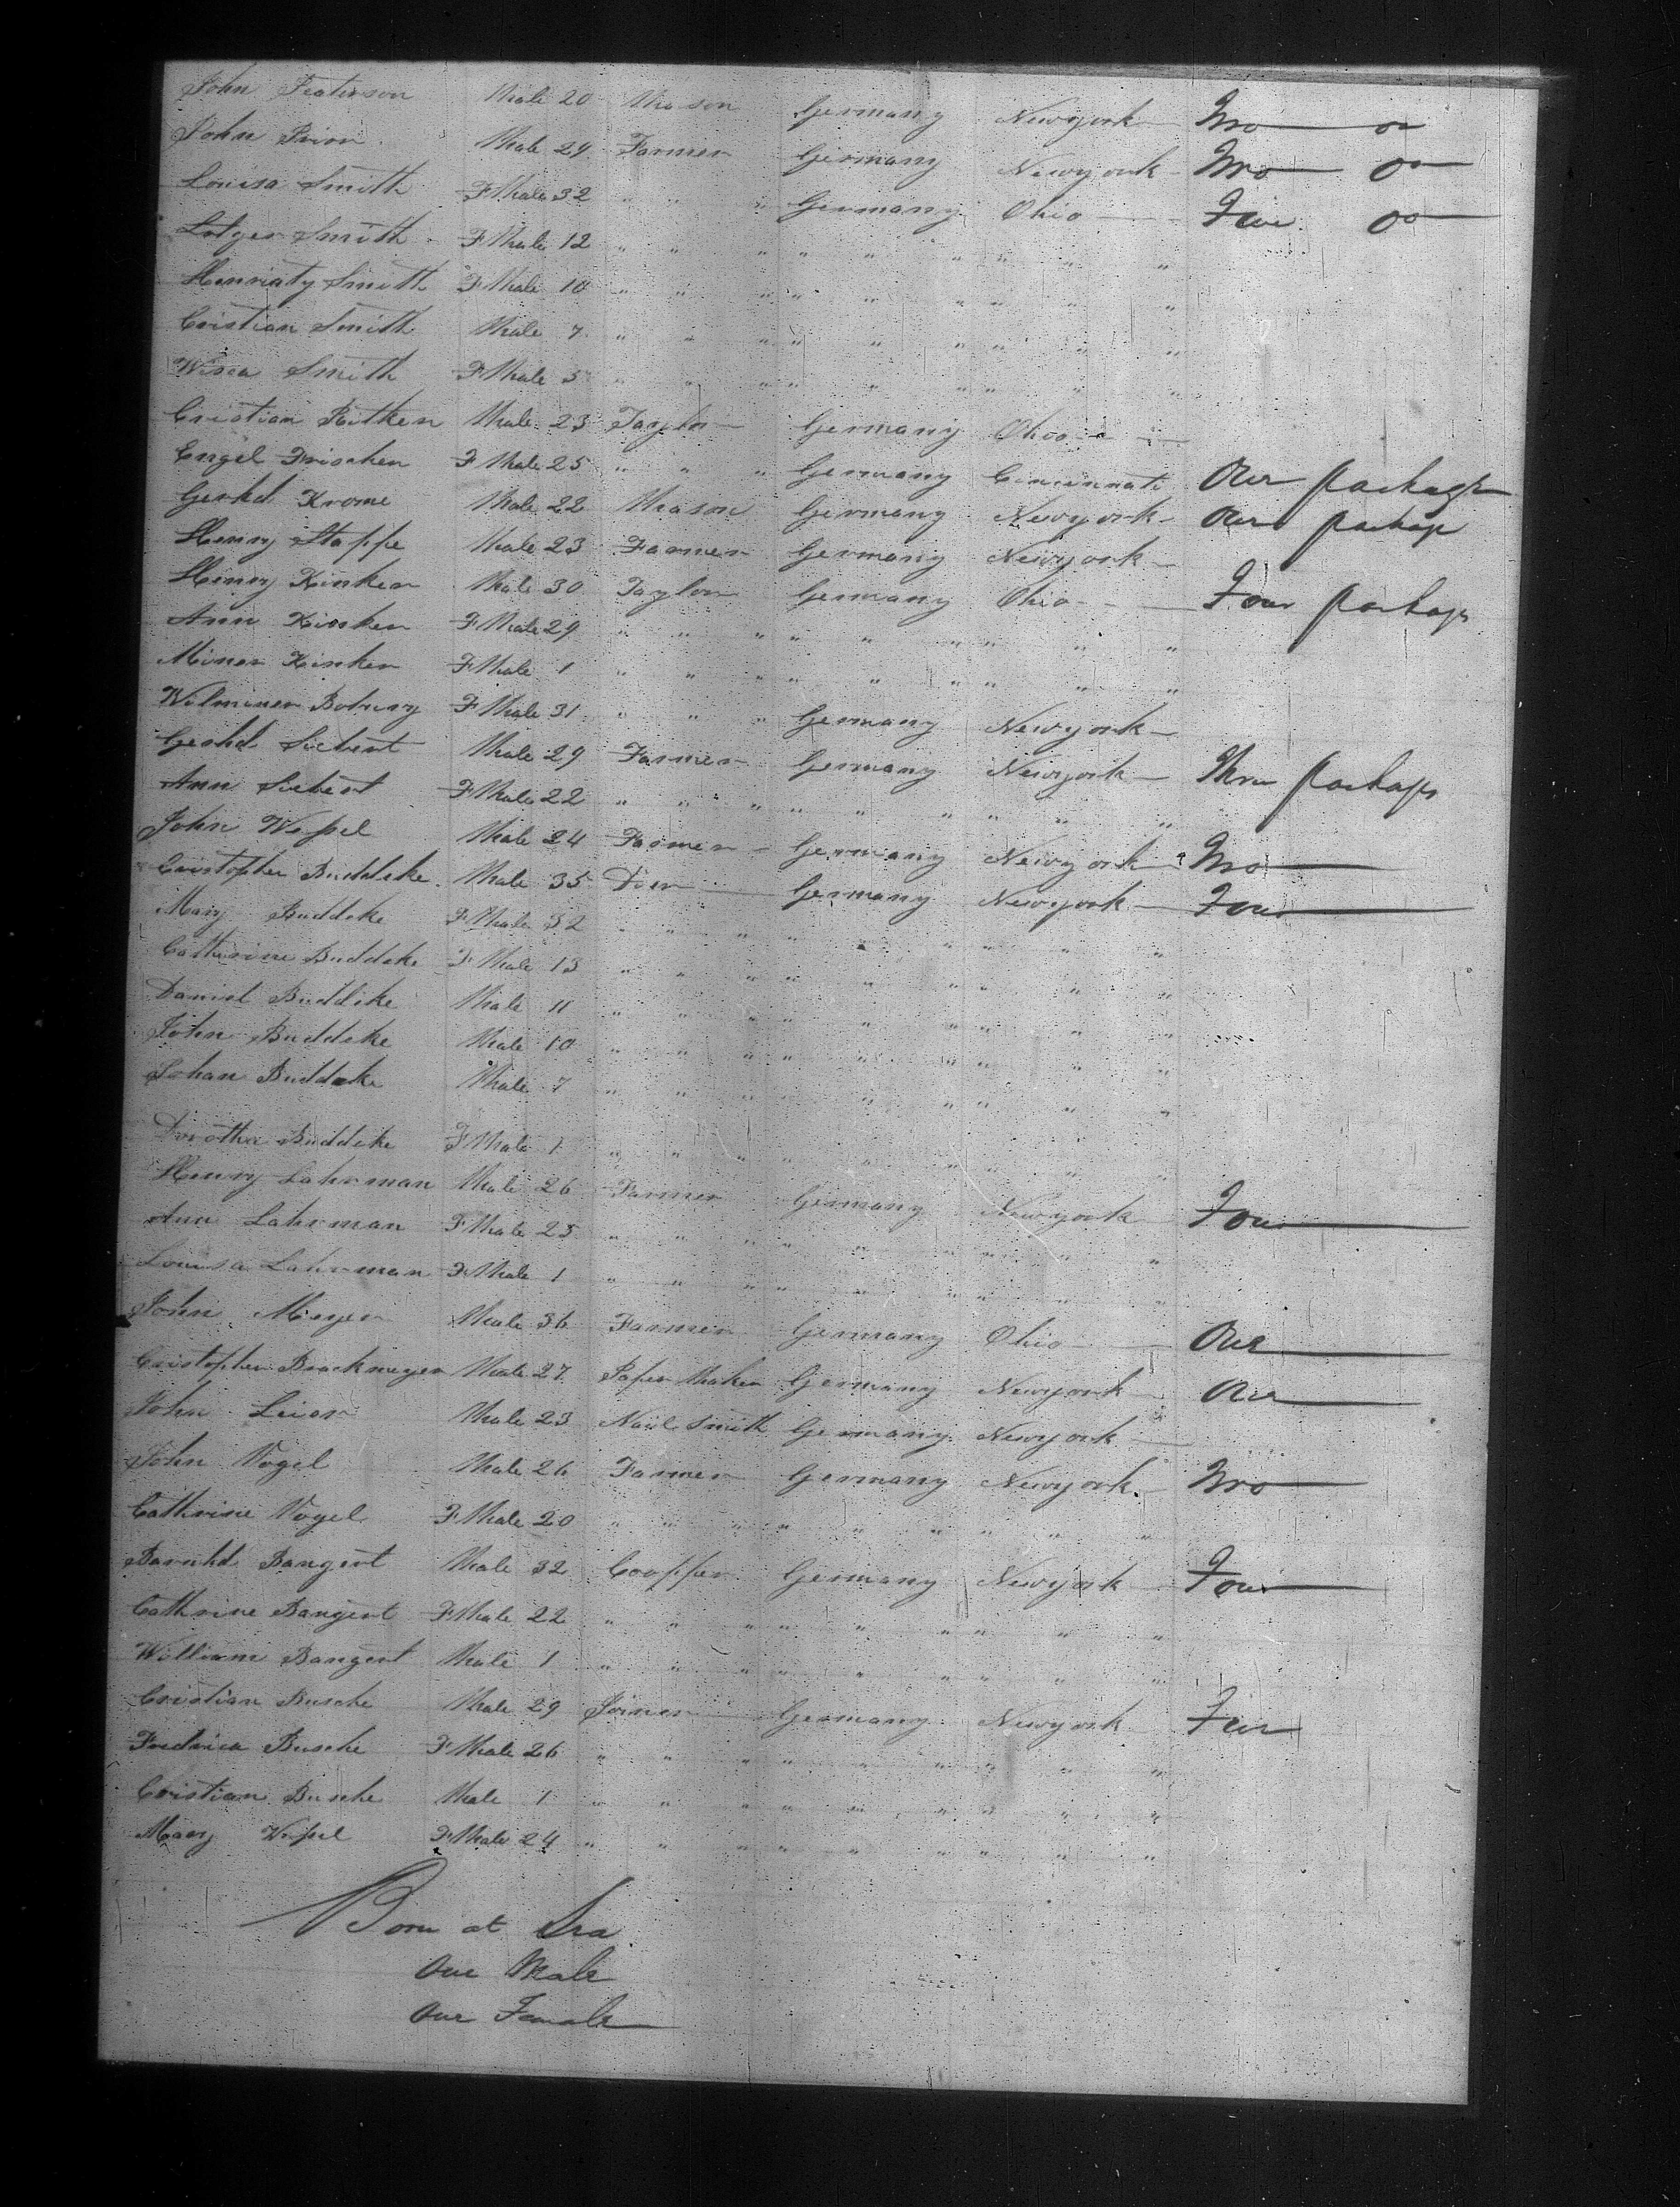 John Peaterson Male 20 Mason Germany Newyork Two do
John Prior Male 29 Farmer Germany Newyork Two do
Louisa Smith F Male 32 " " " Germany Ohio Five do
Smith F Male 12 " " " " " " " " "
Henriaty Smith F Male 10 " " " " " " " " "
Cristian Smith Male 7 " " " " " " " " "
Smith F Male 5 " " " " " " " " "
Cristian Ritken Male 23 Taylor Germany Ohio
Engel Frischen F Male 25 " " " Germany Cincinnati One package
Gerhd Krome Male 22 Mason Germany Newyork One package
Henry Stappe Male 23 Farmer Germany Newyork
Henry Kinken Male 30 Taylor Germany Ohio Four packages
Ann Kinken F Male 29 " " " " " " " " "
Miner Kinken F Male 1 " " " " " " " " "
Wilminer F Male 31 " " " Germany Newyork
Gerhd Siebert Male 29 Farmer Germany Newyork Three packages
Ann Siebert F Male 22 " " " " " " " " "
John Wessel Male 24 Farmer Germany Newyork Two
Cristopher Buddeke Male 35 Dier Germany Newyork Four
Mary Buddeke F Male 32 " " " " " " " " "
Catherine Buddeke F Male 13 " " " " " " " " "
Daniel Buddeke Male 11 " " " " " " " " "
John Buddeke Male 10 " " " " " " " " "
Johan Buddeke Male 7 " " " " " " " " "
Dorothea Buddeke F Male 1 " " " " " " " " "
Henry Lahrman Male 26 Farmer Germany Newyork Four
Ann Lahrman F Male 25 " " " " " " " " "
Louisa Lahrman F Male 1 " " " " " " " " "
John Meyer Male 36 Farmer Germany Ohio One
Cristopher Brockmeyer Male 27 Paper Maker Germany Newyork One
John Leier Male 23 Nail Smith Germany Newyork
John Vogel Male 26 Farmer Germany Newyork Two
Cathrine Vogel F Male 20 " " " " " " " " "
Barnhd Bangert Male 32 Coopper Germany Newyork Four
Cathrine Bangert F Male 22 " " " " " " " " "
William Bangert Male 1 " " " " " " " " "
Cristian Busche Male 29 Joiner Germany Newyork Five
Fredrica Busche F Male 26 " " " " " " " " "
Cristian Busche Male 1 " " " " " " " " "
Mary Wessel F Male 24 " " " " " " " " "
Born at Sea
One Male
One Female